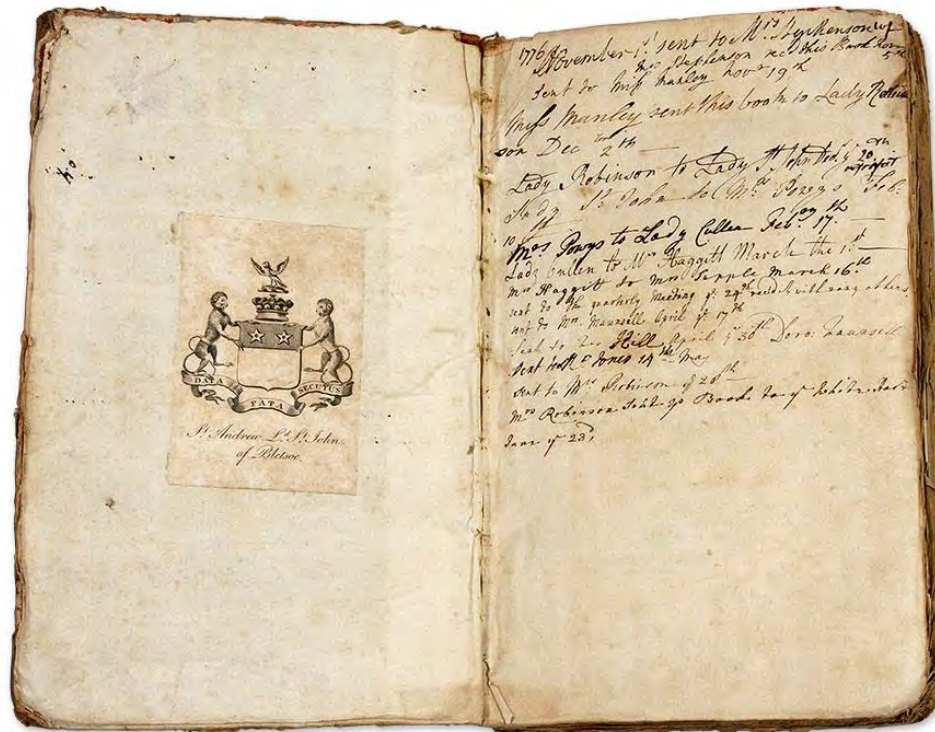 DATA FATA SECUTUS
St. Andrew Ld. St. John
of Bletsoe.
1776
November 1st sent to Mrs Stephenson
Mrs Stephenson recd this Book novr 5th
Sent to Miss Manley novr 19th
Miss Manley sent this book to Lady Robin
son Decbr 2th
Lady Robinson to Lady St John 20th
Lady St John to Mrs Powys Feb:
10th
Mrs Powys to Lady Cullen Feby 17th
Lady Cullen to Mrs Haggitt March the 1st
Mrs Haggitt to Mrs Sepple March 16th
sent to the quarterly Meeting ye 24th read it with many others
sent to Mrs. Maunsell April ye 17th
Sent to Hill April ye 30th Doro: Maunsell
sent to Jones 14th May
sent to Mrs Robinson ye 20th
Mrs Robinson Sent ye Book to ye White
June ye 23d